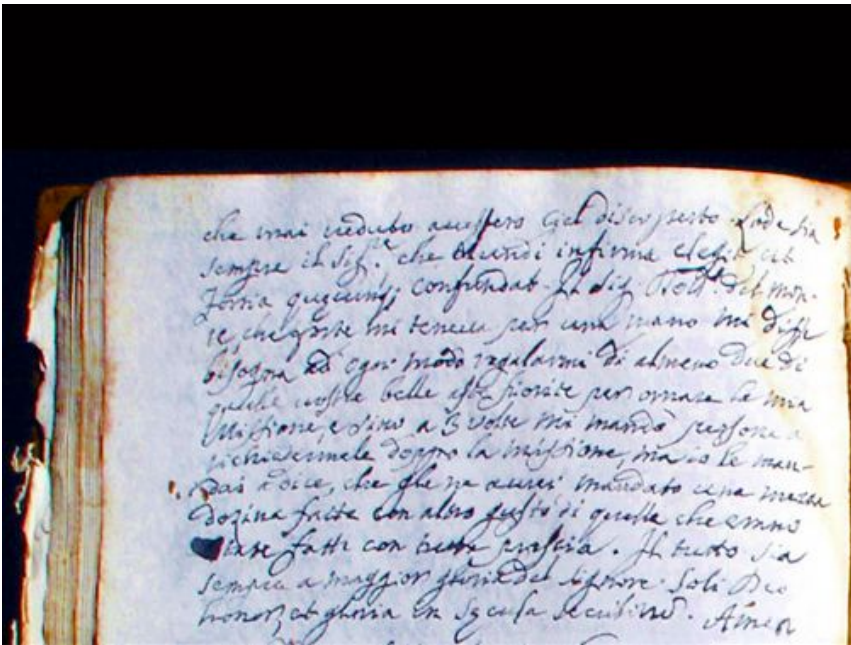 che mai veduto avessero Ciel discoperto. Lode sia
sempre il Sig.re che mundi infirma elegit ut
fortia quęcunq; confundat. Il Sig.
che mi teneva per una mano mi disse
bisogna ad ogni modo regalarmi di almeno due di
quelle vostre belle aste fiorite per ornare le mia
Missione, e sino a 3 volte mi mandò persone a
richiedermele doppo la missione, ma io le man-
dai a dire, che gle ne averei mandato una mezza
dozina fatte con altro gusto di quelle che erano
state fatti con tutta prescia. Il tutto sia
sempre a maggior gloria del Signore. Soli Deo
honor, et gloria in sęcula Amen